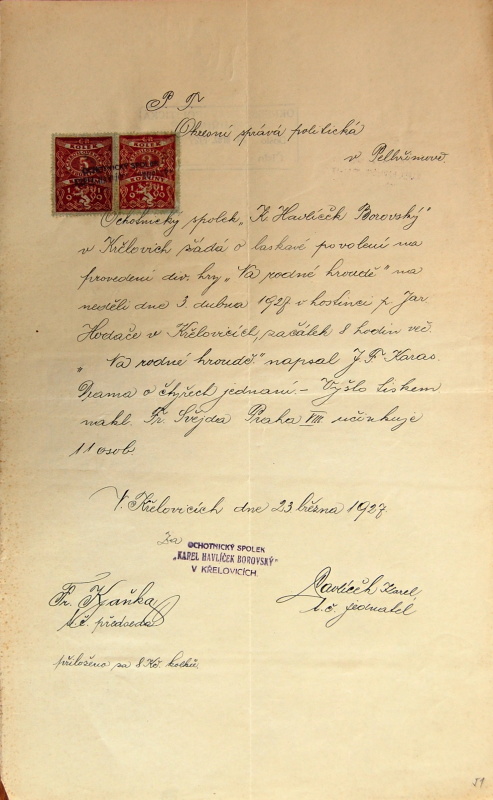 P. T.
Okresní správa politická
v Pelhřimově.
KOLEK
KOLEK
5
3
OCHOTNICKÝ SPOLEK
Ochotnický spolek „K. Havlíček Borovský“
v Křělovich žádá o laskavé povolení na
provedení div. hry „Na rodné hroudě“ na
neděli dne 3. dubna 1927 v hostinci p. Jar.
Hodače v Křělovicích, začátek 8 hodin več.
„Na rodné hroudě.“ napsal J. F. Karas.
Drama o čtyřech jednání. – Vyšlo tiskem
nakl. Fr. Švejda Praha VIII. učinkuje
11 osob.
V. Křělovicích dne 23 března 1927.
Za
OCHOTNICKÝ SPOLEK
„KAREL HAVLÍČEK BOROVSKÝ“
V KŘELOVICÍCH.
Fr. Zaňka
t. č. předseda
Pavlíčěk Karel,
t. č. jednatel
přiloženo za 8 Kč. kolků.
51.